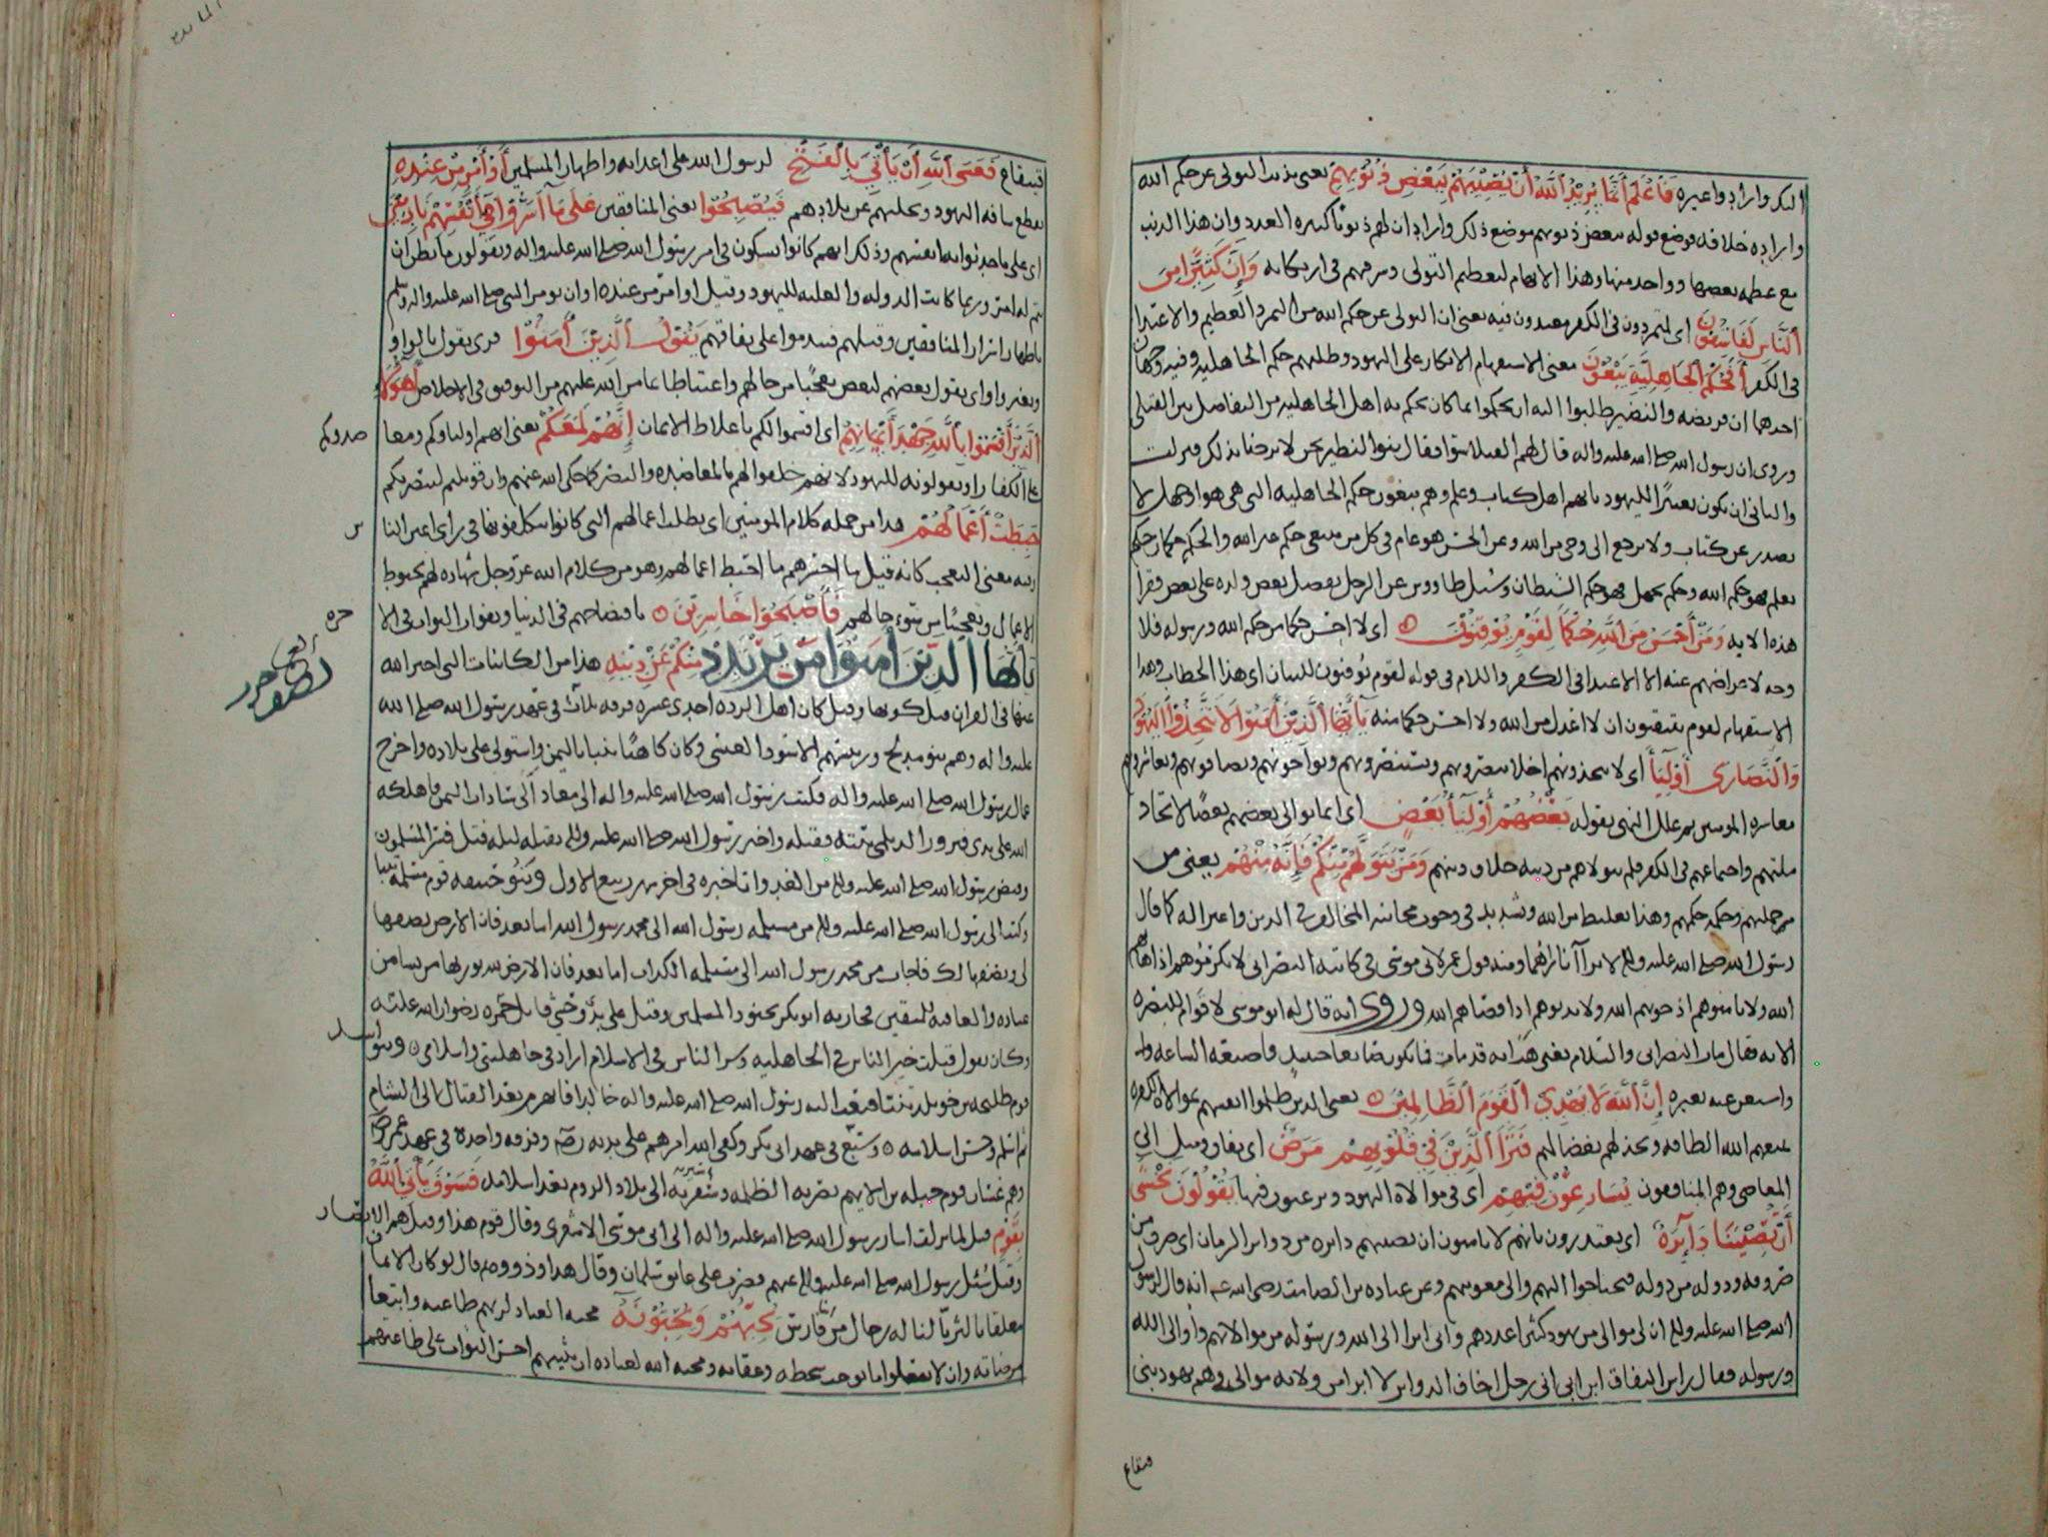 اليك وارادوا غيره فَاعْلَمْ أَنَّمَا يُرِيدُ ٱللَّهُ أَنْ يُصِيبَهُمْ بِبَعْضِ ذُنُوبِهِمْ يعنى بذنب التولى عن حكم الله
واراده خلافه فوضع قوله ببعض ذنوبهم موضع ذلك واراد ان لهم ذنوبا كثيره العدد وان هذا الذنب
مع عظمه بعضها وواحد منها وهذا الابهام لتعظيم التولى وسرفهم فى ارتكابه وَإِنَّ كَثِيرًا مِنَ
ٱلنَّاسِ لَفَاسِقُونَ اى لمتمردون فى الكفر معتدون فيه يعنى ان التولى عن حكم الله من التمرد العظيم والاعتدا
فى الكفر أَفَحُكْمَ ٱلْجَاهِلِيَّةِ يَبْغُونَ معنى الاستفهام الانكار على اليهود وطلبهم حكم الجاهلية وفيه وجهان
احدهما ان قريضه والنضير طلبوا اليه ان يحكموا بما كان يحكم به اهل الجاهليه من التفاضل بين القتلى
وروى ان رسول الله صلى الله عليه واله قال لهم القتلا سوا فقال بنوا النظير نحن لا نرضا بذلك فنزلت
والثانى ان يكون تعييرًا لليهود بانهم اهل كتاب وعلم وهم يبغون حكم الجاهليه التى هى هوا وجهل لا
يصدر عن كتاب ولا يرجع الى وحى من الله وعن الحسن هو عام فى كل من يبتغى حكم غير الله والحكم حكمان حكم
بعلم فهو حكم الله وحكم بجهل فهو حكم الشيطان وسُئل طاووس عن الرجل يفضل بعض ولده على بعض فقرا
هذه الايه وَمَنْ أَحْسَنُ مِنَ ٱللَّهِ حُكْمًا لِقَوْمٍ يُوقِنُونَ اى لا احسن حكما من حكم الله ورسوله فلا
وجه لاعراضهم عنه الا الاعتدا فى الكفر واللام فى قوله لقوم يوقنون للبيان اى هذا الخطاب وهذا
الاستفهام لقوم يتيقنون ان لا اعدل من الله ولا احسن حكما منه يَأَيُّهَا ٱلَّذِينَ أَمَنُوا لَا تَتَّخِذُوا ٱلْيَهُودَ
وَٱلنَّصَارَى أَوْلِيَآءَ اى لا تتخذونهم اخلا تنصرونهم وتستنصرونهم وتواخونهم وتصافونهم وتعاشرونهم
معاشره المومنين ثم علل النهى بقوله بَعْضُهُمْ أَوْلِيَآءُ بَعْضٍ اى انما يوالى بعضهم بعضًا لاتحاد
ملتهم واجتماعهم فى الكفر فلم يتولاهم من دينه خلاف دينهم وَمَنْ يَتَوَلَّهُمْ مِنْكُمْ فَإِنَّهُ مِنْهُمْ يعنى من
من جملتهم وحكمه حكمهم وهذا تغليظ من الله وتشديد فى وجوب مجانبه المخالف فى الدين واعتزاله كما قال
رسول الله صلى الله عليه واله لا تراآ ناراهما ومنه قول عمر لابى موسى فى كاتبه النصرانى لا تكرموهم اذ اهانهم
الله ولا تامنوهم اذ خونهم الله ولا تدنوهم اذ اقصاهم الله وروى انه قال له ابو موسى لا قوام للبصره
الا به فقال مات النصرانى والسلام يعنى هب انه قد مات فما تكون صانعا حينئذ فاصنعه الساعه
واستغن عنه بغيره إِنَّ ٱللَّهَ لَا يَهْدِي ٱلْقَوْمَ ٱلظَّالِمِينَ يعنى الذين ظلموا انفسهم بموالاه الكفره
يمنعهم الله الطافه ويخذلهم بفضالهم فَتَرَى ٱلَّذِينَ فِي قُلُوبِهِمْ مَرَضٌ اى نفاق وميل الى
المعاصى وهم المنافقون يُسَارِعُونَ فِيهِمْ اى فى موالاة اليهود ويرغبون فيها يَقُولُونَ نَخْشَى
أَنْ تُصِيبَنَا دَآئِرَةٌ اى يعتذرون بانهم لا يامنون ان تصيبهم دائره من دوائر الزمان اى صرف من
صروفه ودوله من دوله فيحتاجوا اليهم والى معونتهم وعن عباده بن الصامت رضى الله عنه انه قال لرسول
الله صلى الله عليه واله ان لى موالى من يهود كثيرا عددهم وانى ابرا الى الله ورسوله من موالاتهم واوالى الله
ورسوله فقال راس النفاق ابن ابى انى رجل اخاف الدوائر لا ابرا من ولايه موالى وهم يهود بنى
قينقاع
قينقاع فَعَسَى ٱللَّهُ أَنْ يَأْتِيَ بِٱلْفَتْحِ لرسول الله على اعدائه واظهار المسلمين أَوْ أَمْرٍ مِنْ عِنْدِهِ
بقطع شافه اليهود ويجليهم عن بلادهم فَيُصْبِحُوا يعنى المنافقين عَلَى مَا أَسَرُّوا فِي أَنْفُسِهِمْ نَادِمِينَ
اى على ما حدثوا به انفسهم وذلك انهم كانوا يشكون فى امر رسول الله صلى الله عليه واله ويقولون ما نظن ان
يتم له امر وربما كانت الدوله والغلبه لليهود وقيل او امر من عنده او ان يومر النبى صلى الله عليه واله وسلم
باظهار اسرار المنافقين وقتلهم فيندموا على نفاقهم يَقُولُ ٱلَّذِينَ أَمَنُوا قرى يقول بالواو
وبغير واو اى يقول بعضهم لبعض تعجبًا من حالهم واغتباطا بما من الله عليهم من التوفيق فى الاخلاص أَهَؤُلَآءِ
ٱلَّذِينَ أَقْسَمُوا بِٱللَّهِ جَهْدَ أَيْمَانِهِمْ اى اقسموا لكم باغلاظ الايمان إِنَّهُمْ لَمَعَكُمْ يعنى انهم اولياوكم ومعا
ضدوكم
على الكفار او يقولونه لليهود لانهم حلفوا لهم بالمعاضده والنصر كما حكى الله عنهم وان قوتلتم لننصرنكم
حَبِطَتْ أَعْمَالُهُمْ هذا من جمله كلام المومنين اى بطلت اعمالهم التى كانوا يتكلفونها فى راى اعين النا
س
وفيه معنى التعجب كانه قيل ما اخسرهم ما احبط اعمالهم وهو من كلام الله عز وجل شهاده لهم بحبوط
الاعمال وتعجبًا من سوء حالهم فَأَصْبَحُوا خَاسِرِينَ بافتضاحهم فى الدنيا وبفوات الثواب فى الا
خره
يَأَيُّهَا ٱلَّذِينَ أَمَنُوا مَنْ يَرْتَدِدْ مِنْكُمْ عَنْ دِينِهِ هذا من الكائنات التى اخبر الله
عنها فى القران قبل كونها وقيل كان اهل الرده احدى عشره فرقه ثلاث فى عهد رسول الله صلى الله
عليه واله وهم بنو مدلج ورييسهم الاسود العنسى وكان كاهنًا تنبا باليمن واستولى على بلاده واخرج
عمال رسول الله صلى الله عليه واله فكتب رسول الله صلى الله عليه واله الى معاذ الى سادات اليمن فاهلكه
الله على يدى فيروز الديلمى بيته فقتله واخبر رسول الله صلى الله عليه واله بقتله ليله قتل فسر المسلمون
وقبض رسول الله صلى الله عليه واله من الغد واتا خبره فى اخر شهر ربيع الاول وبنو حنيفه قوم مسيلمه تنبا
وكتب الى رسول الله صلى الله عليه واله من مسيلمه رسول الله الى محمد رسول الله اما بعد فان الارض نصفها
لى ونصفها لك فاجاب من محمد رسول الله الى مسيلمه الكذاب اما بعد فان الارض لله يورثها من يشا من
عباده والعاقبه للمتقين فحاربه ابو بكر بجنود المسلمين وقتل على يدى وحشى قاتل حمزه رضوان الله عليه
وكان يقول قتلت خير الناس فى الجاهليه وشر الناس فى الاسلام اراد فى جاهليتى واسلامى وبنوا
اسد
قوم طليحه بن خويلد تنبا فبعث اليه رسول الله صلى الله عليه واله خالدا فانهزم بعد القتال الى الشام
ثم اسلم وحسن اسلامه وسبع فى عهد ابى بكر وكفى الله امرهم على يديه وفرقه واحدة فى عهد عمر
وهم غسان قوم جبله بن الايهم نصرته اللطمه وسيرته الى بلاد الروم بعد اسلامه فَسَوْفَ يَأْتِي ٱللَّهُ
بِقَوْمٍ قيل لما نزلت اشار رسول الله صلى الله عليه واله الى ابى موسى الاشعرى وقال قوم هذا وقيل هم الا
نصار
وقيل سُئل رسول الله صلى الله عليه واله عنهم فضرب على عاتق سلمان وقال هذا وذووه ثم قال لو كان الايمان
معلقا بالثريا لناله رجال من فارس يُحِبُّهُمْ وَيُحِبُّونَهُ محبه العباد لربهم طاعته وابتغا
مرضاته وان لا يفعلوا ما يوجب سخطه وعقابه ومحبه الله لعباده ان يثيبهم احسن الثواب على طاعتهم